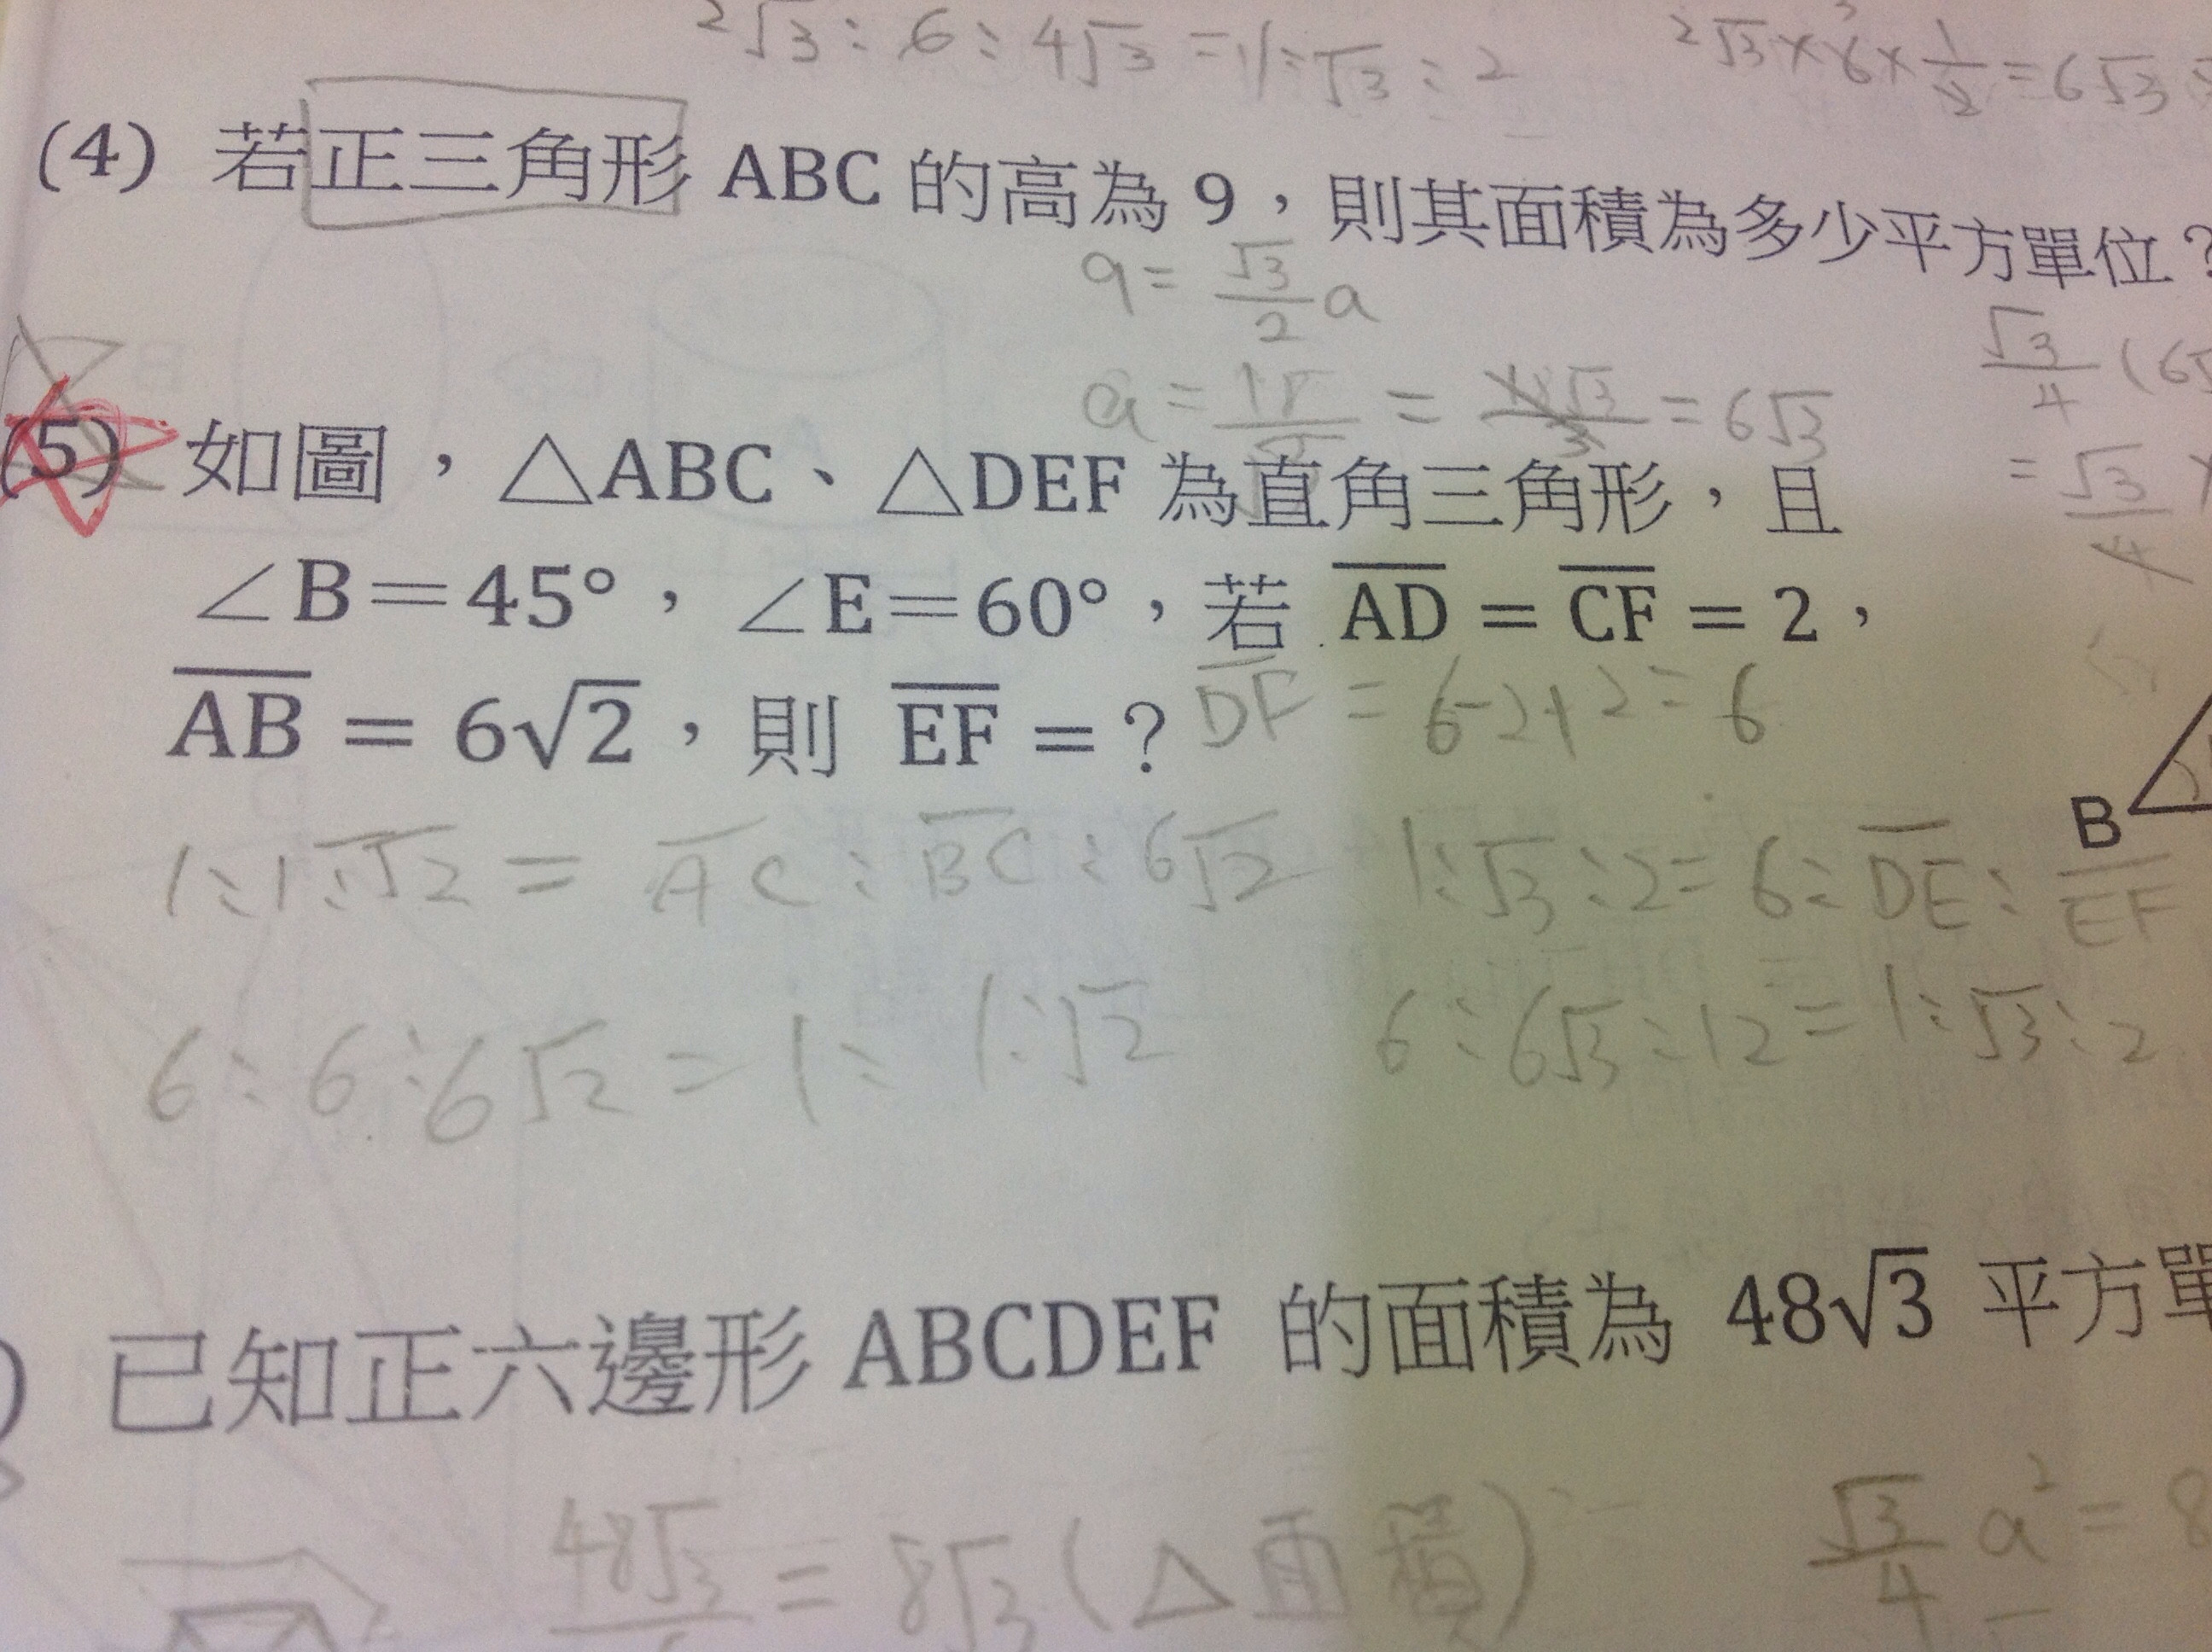 2√3 : 6 : 4√3 = 1 : √3 : 2
2√3 × 6 × 1/2 = 6√3
(4) 若正三角形 ABC 的高為 9，則其面積為多少平方單位？
9 = √3/2 a
√3/4 (6
a = 18/√3 = 18√3/3 = 6√3
= √3/4 ×
(5) 如圖，△ABC、△DEF 為直角三角形，且
∠B＝45°，∠E＝60°，若 AD = CF = 2，
AB = 6√2，則 EF = ？
DF = 6-2+2 = 6
B
1 : 1 : √2 = AC : BC : 6√2
1 : √3 : 2 = 6 : DE : EF
6 : 6 : 6√2 = 1 : 1 : √2
6 : 6√3 : 12 = 1 : √3 : 2
已知正六邊形 ABCDEF 的面積為 48√3 平方單
48√3/6 = 8√3 (△面積)
√3/4 a² = 8